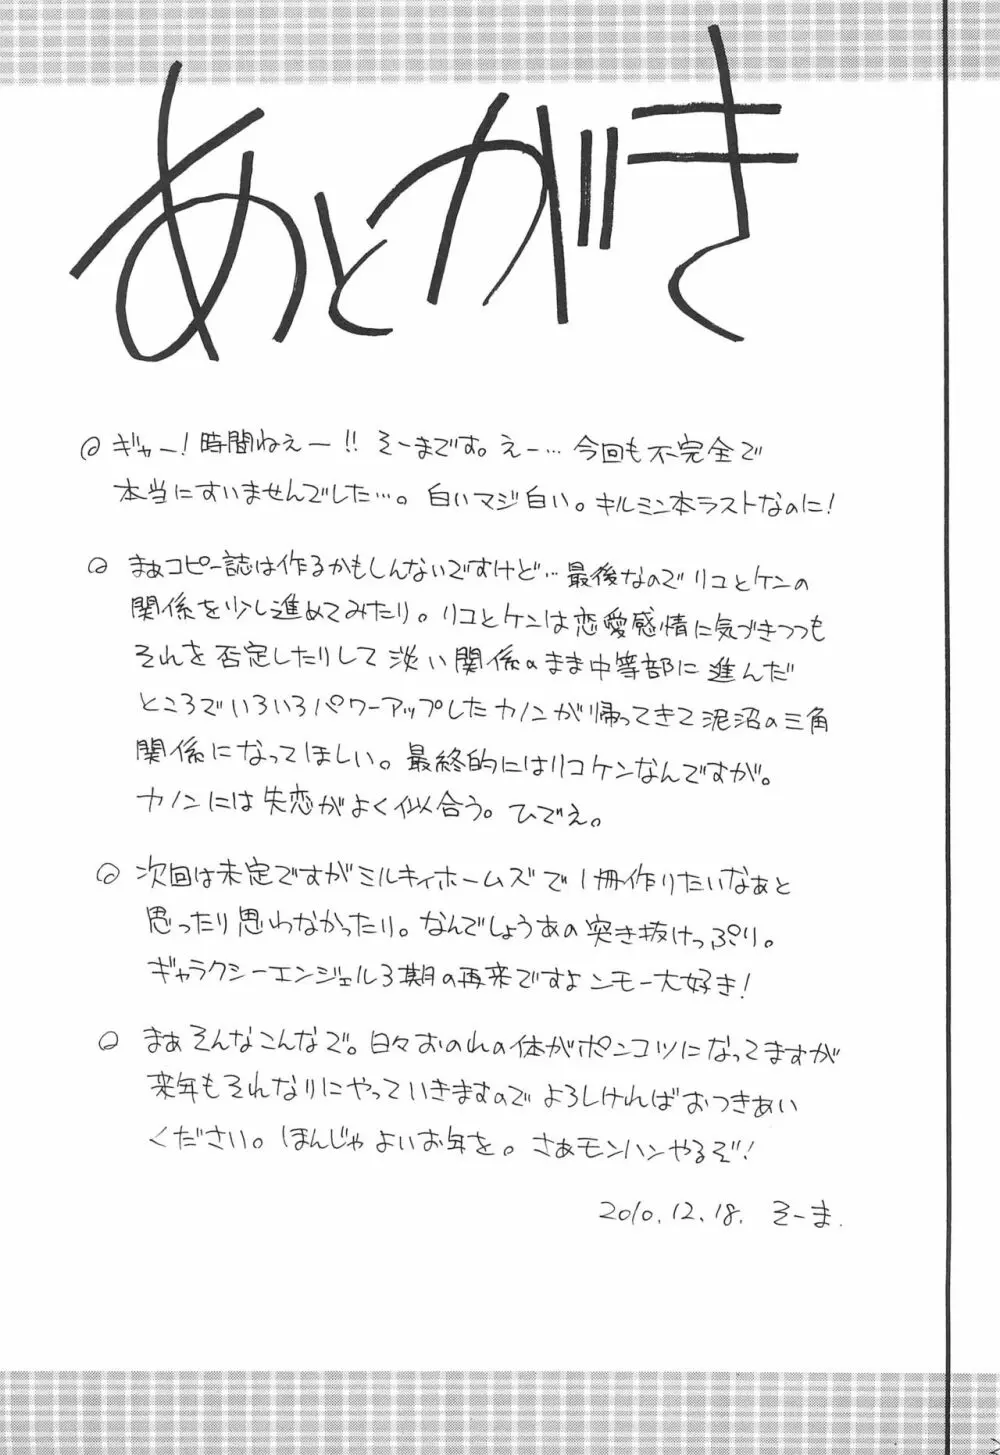 あとがき
ギャー！時間ねぇー!! そーまです。えー…今回も不完全で
本当にすいませんでした…。白いマジ白い。キルミン本ラストなのに！
まぁコピー誌は作るかもしんないですけど…最後なのでリコとケンの
関係を少し進めてみたり。リコとケンは恋愛感情に気づきつつも
それを否定したりして淡い関係のまま中等部に進んだ
ところでいろいろパワーアップしたカノンが帰ってきて泥沼の三角
関係になってほしい。最終的にはリコケンなんですが。
カノンには失恋がよく似合う。ひでえ。
次回は未定ですがミルキィホームズで1冊作りたいなぁと
思ったり思わなかったり。なんでしょうあの突き抜けっぷり。
ギャラクシーエンジェル3期の再来ですよンモー大好き！
まぁそんなこんなで。日々おのれの体がポンコツになってますが
来年もそれなりにやっていきますのでよろしければおつきあい
ください。ほんじゃよいお年を。さぁモンハンやるぞ！
2010.12.18. そーま.